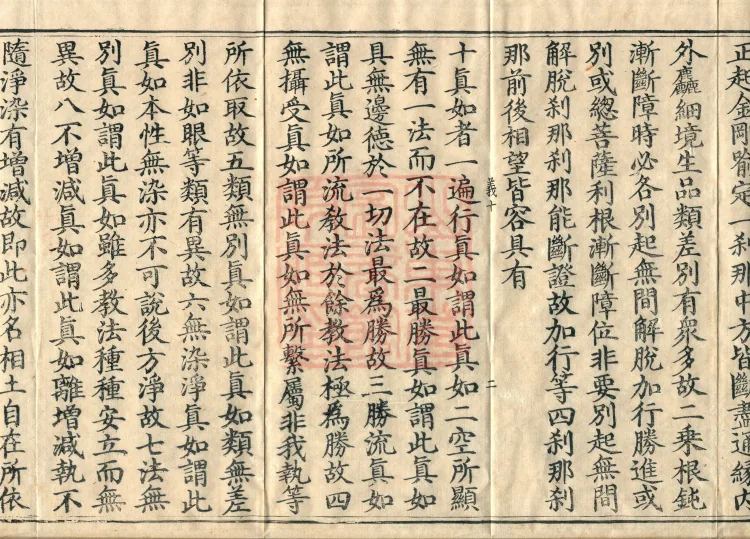 正起金剛喻定一刹那中方皆斷盡通緣内
外麤細境生品類差別有衆多故二乗根鈍
漸斷障時必各別起無間解脫加行勝進或
別或緫菩薩利根漸斷障位非要別起無間
解脫刹那刹那能斷證故加行等四刹那刹
那前後相望皆容具有
義十
二
十眞如者一遍行眞如謂此眞如二空所顯
無有一法而不在故二最勝眞如謂此眞如
具無邊德於一切法最爲勝故三勝流眞如
謂此眞如所流教法於餘教法極爲勝故四
無攝受眞如謂此眞如無所繫屬非我執等
所依取故五類無別眞如謂此眞如類無差
別非如眼等類有異故六無染淨眞如謂此
眞如本性無染亦不可說後方淨故七法無
別眞如謂此眞如雖多教法種種安立而無
異故八不增減眞如謂此眞如離增減執不
隨淨染有增減故即此亦名相土自在所依